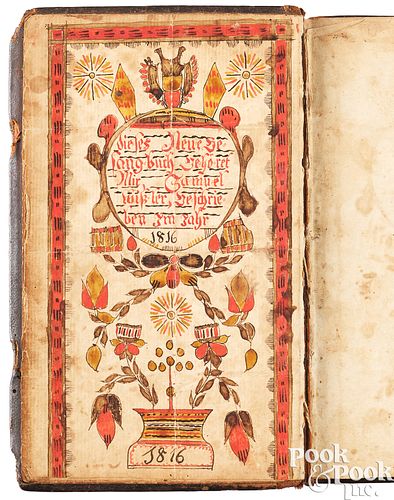 dieses Neue Ge-
sangbuch Gehöret
Mir, Samuel
wißler, Geschrie-
ben Im Jahr
1816
1816
Pook
& Pook
Inc.